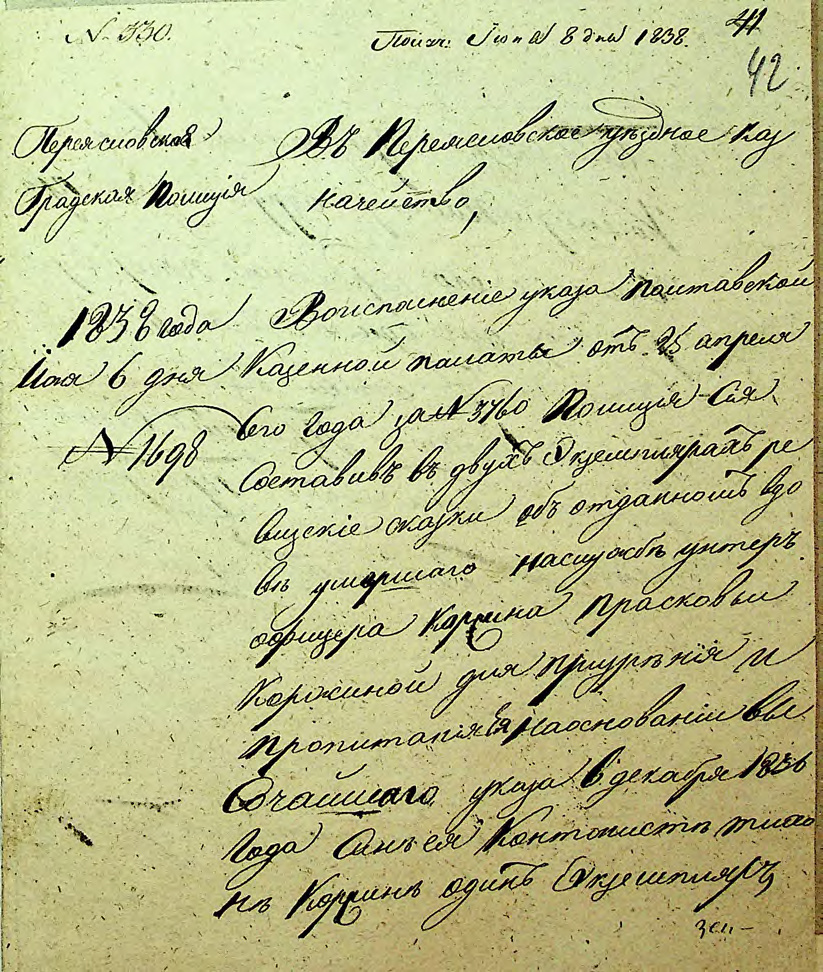 N. 330.
Получ: Іюня 8 дня 1838.
41
42
Переясловская
Градская Полиція
Въ Переясловское уѣздное каз
начейство,
1838 года
Мая 6 дня
N 1698
Воисполненіе указа Полтавской
Казенной палаты отъ 25 апреля
сего года за N 3760 Полиція сія
Составивъ въ двухъ Экземплярахъ ре
визскіе сказки объ отданномъ вдо
вѣ умершаго наслужбѣ унтеръ
офицера Коржина Прасковьи
Коржиной для призрѣнія и
пропитанія Ея наоснованіи вы
Сочайшаго указа 6 декабря 1836
года Сынѣ ея Кантонистѣ
нѣ Коржинѣ одинъ Экземпляръ